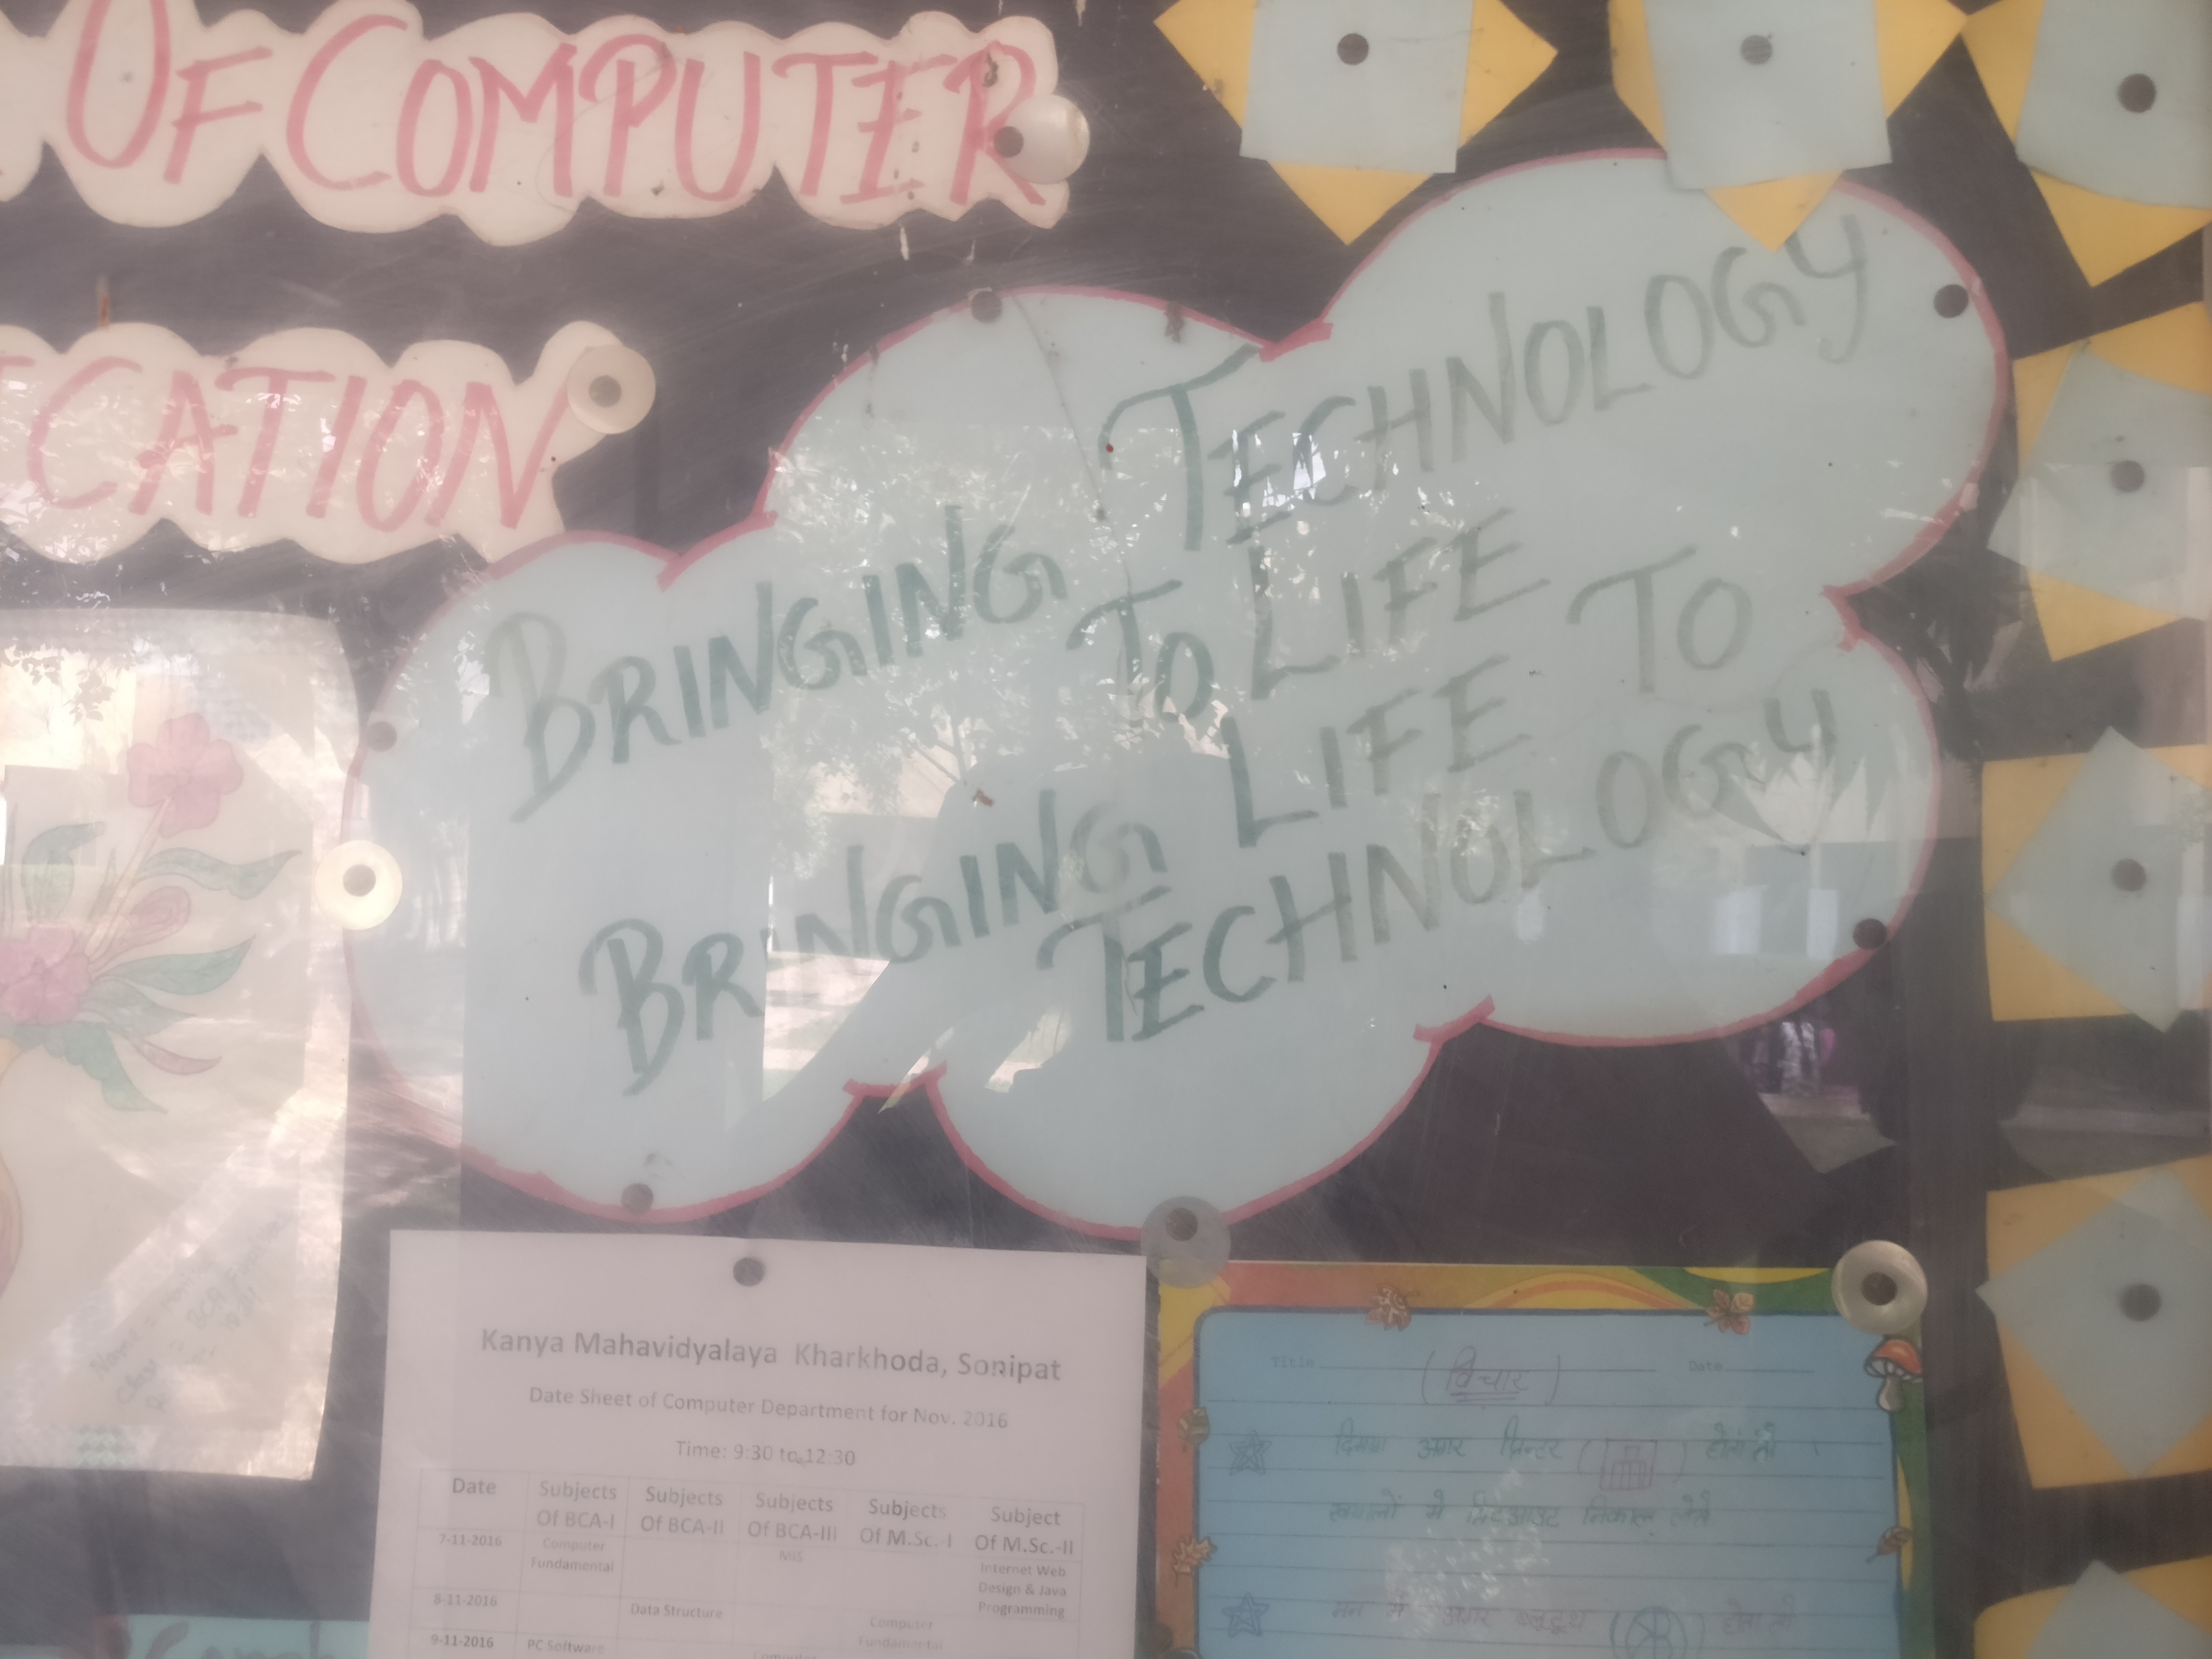 OF COMPUTER
CATION
BRINGING TECHNOLOGY
TO LIFE
BRINGING LIFE TO
TECHNOLOGY
Kanya Mahavidyalaya Kharkhoda, Sonipat
Date Sheet of Computer Department for Nov. 2016
Time: 9:30 to 12:30
Date Subjects Of BCA-I Subjects Of BCA-II Subjects Of BCA-III Subjects Of M.Sc.-I Subject Of M.Sc.-II
7-11-2016 Computer Fundamental MIS Internet Web Design & Java Programming
8-11-2016 Data Structure Computer Fundamental
9-11-2016 PC Software
Title Date
(विचार)
दिमाग अगर प्रिन्टर ( ) होता तो
ख्यालों में प्रिंटआउट निकाल लेते
मन में अगर ब्लूटूथ ( ) होता तो